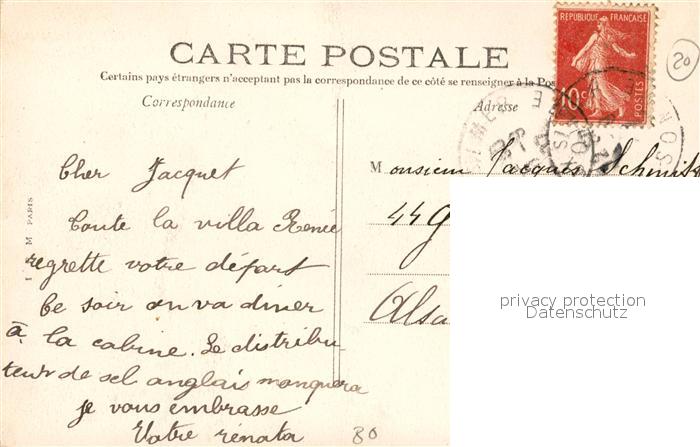 RÉPUBLIQUE FRANÇAISE
10c
POSTES
20
CARTE POSTALE
Certains pays étrangers n'acceptant pas la correspondance de ce côté se renseigner à la Pos
Correspondance
Adresse
Cher Jacquot
Toute la villa Renée
regrette votre départ
Ce soir on va diner
à la cabine. Le distribu-
teur de sel anglais manquera
je vous embrasse
Votre rénata
80
M PARIS
Monsieur Jacques Schmitt
44 G
Alsa
privacy protection
Datenschutz